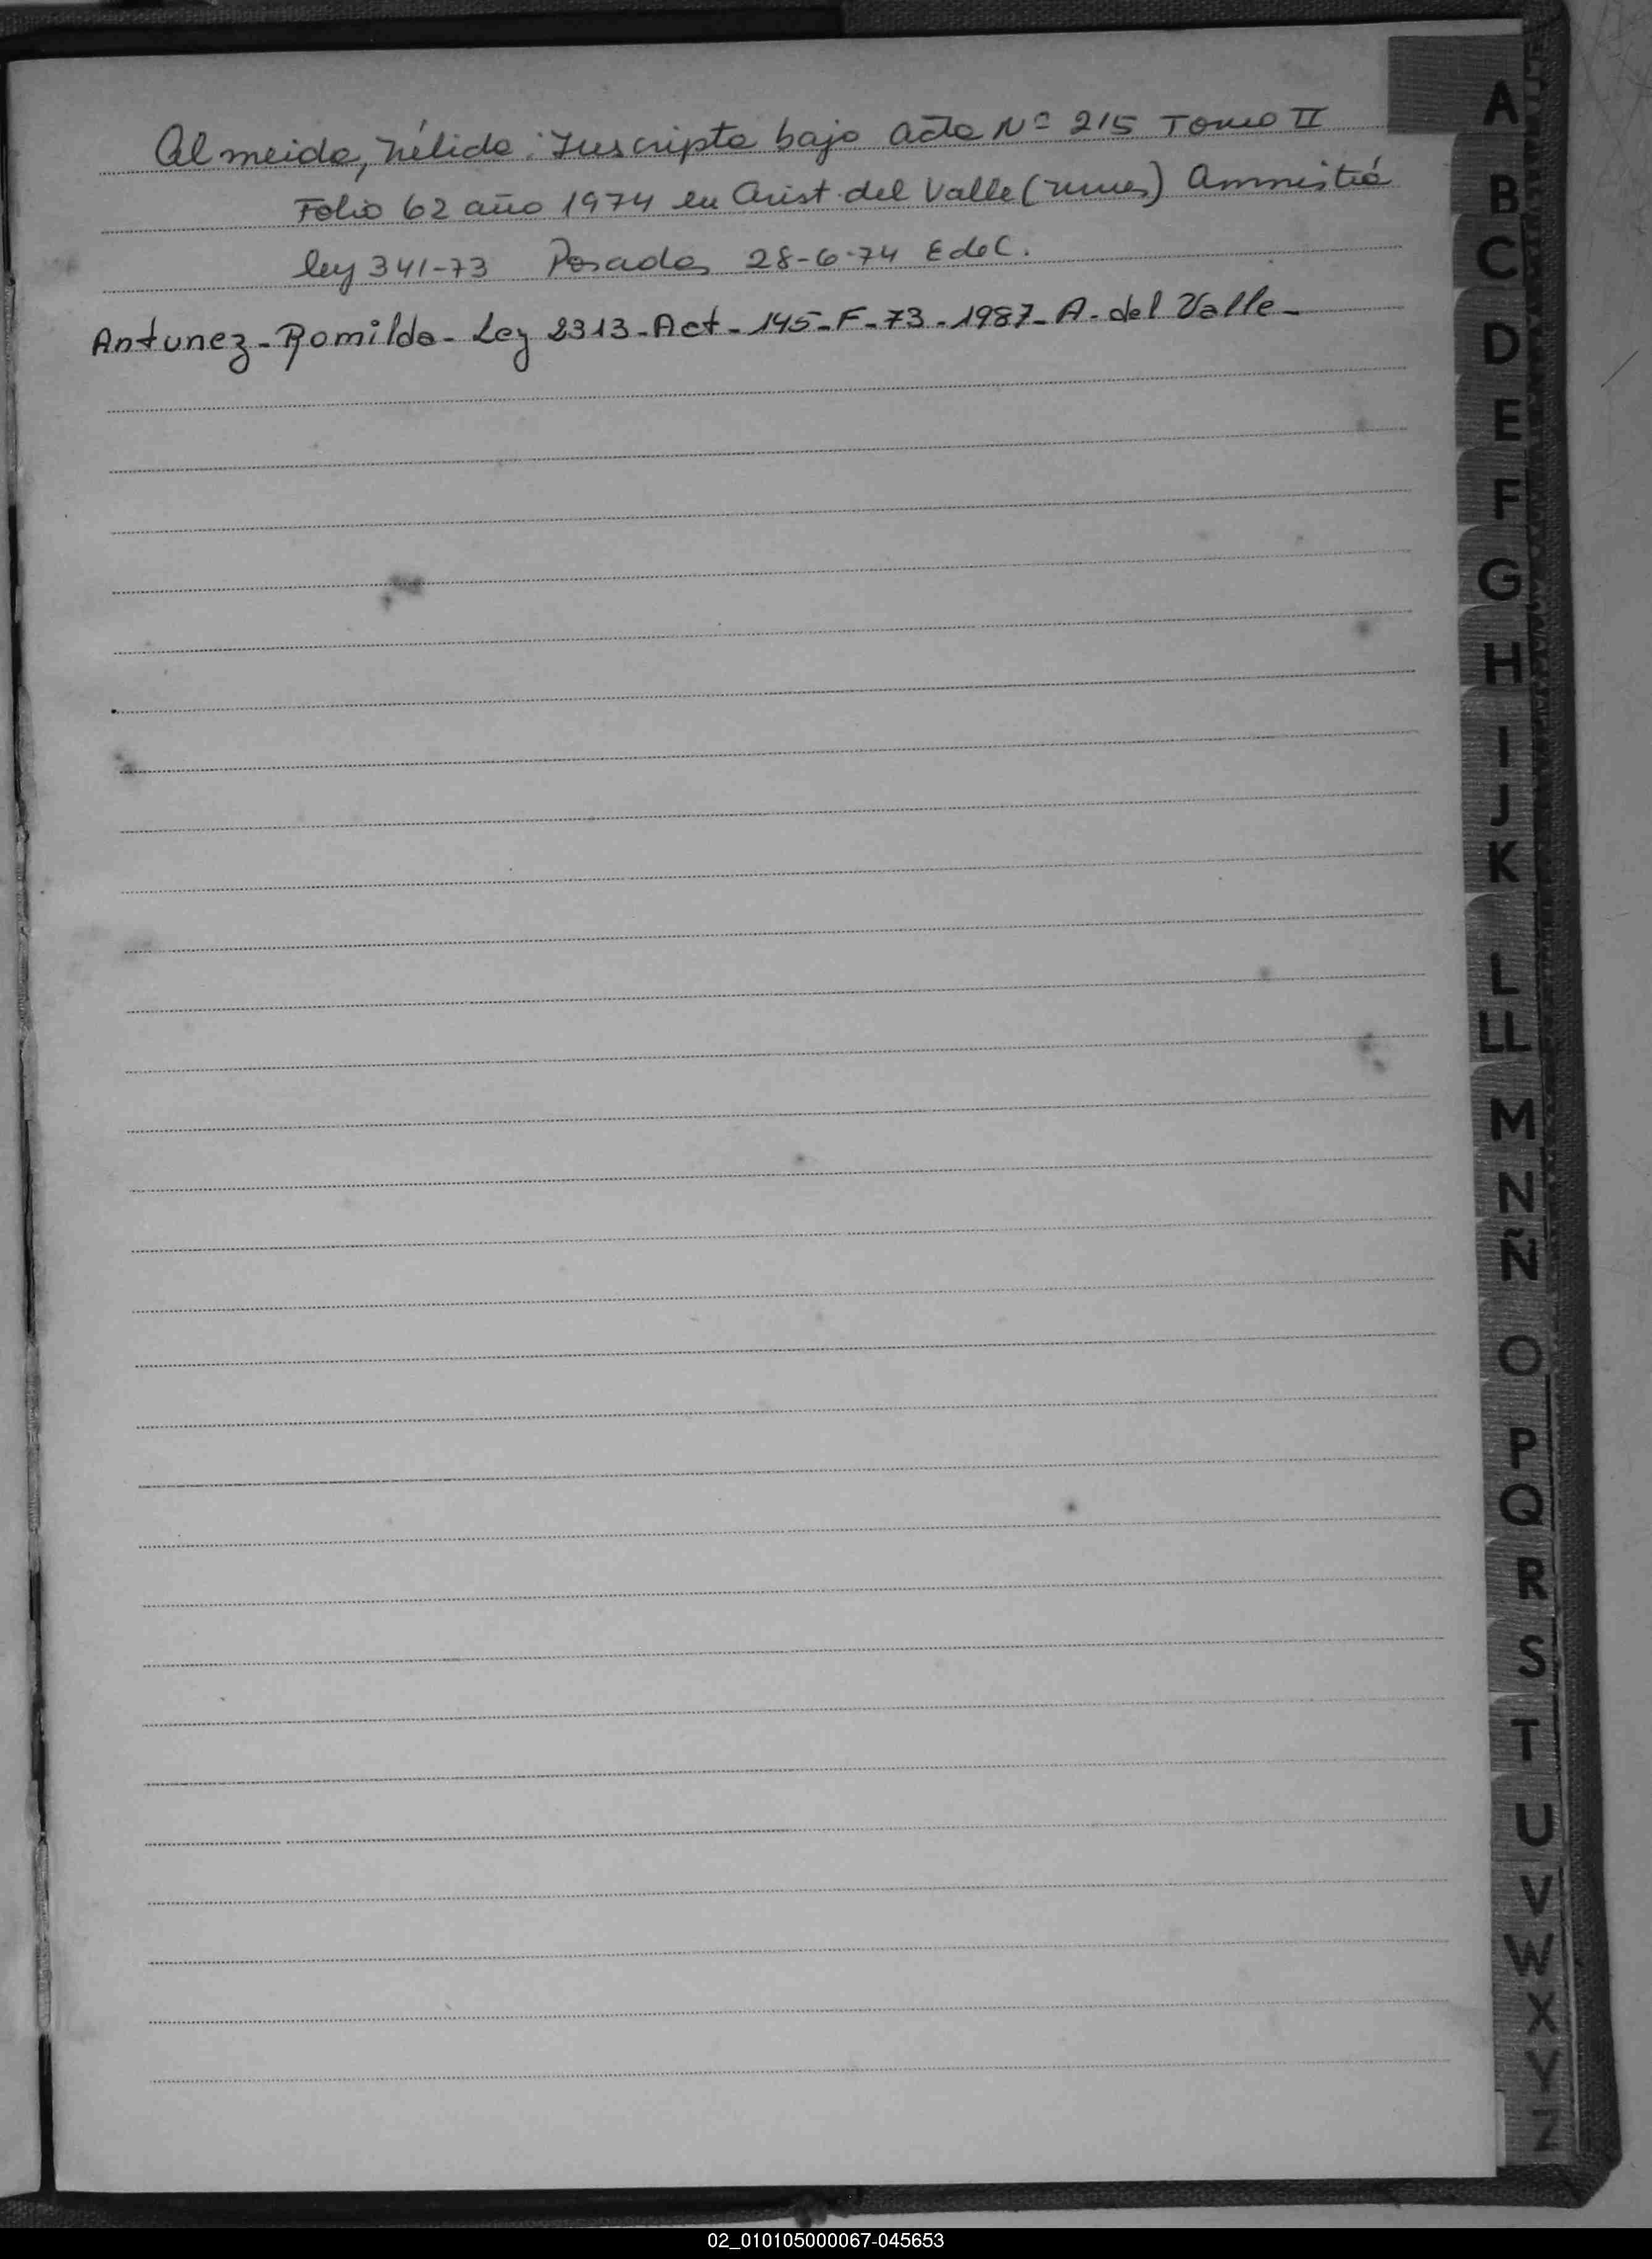 Almeida, Nélida: Inscripta bajo Acta Nº 215 Tomo II
Folio 62 año 1974 en Arist. del Valle (mnes) Amnistiá
ley 341-73 Posadas 28-6-74 E de C.
Antunez - Romilda - Ley 2313 - Act - 145 - F - 73 - 1987 - A. del Valle -
A
B
C
D
E
F
G
H
I
J
K
L
LL
M
N
Ñ
O
P
Q
R
S
T
U
V
W
X
Y
Z
02_010105000067-045653